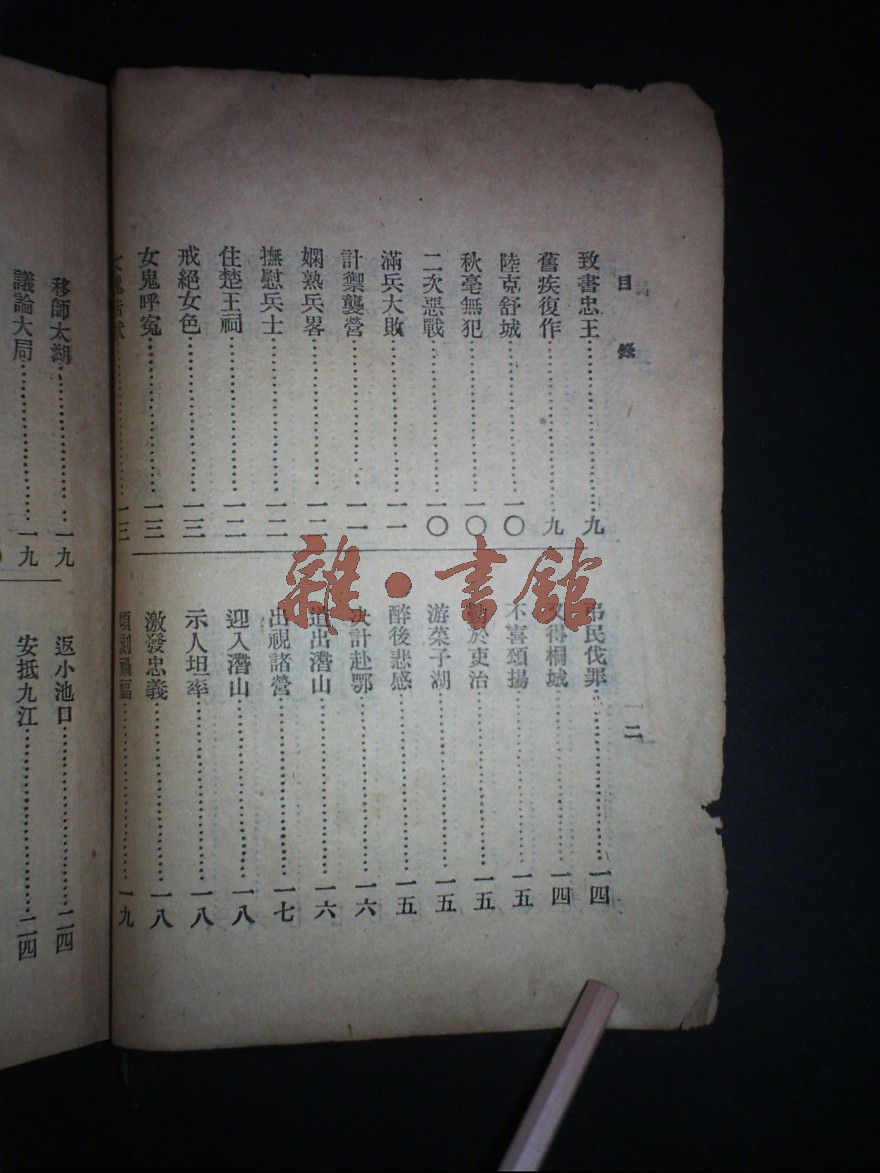 目錄
二
致書忠王……九
舊疾復作……九
陸克舒城……一〇
秋毫無犯……一〇
二次惡戰……一〇
滿兵大敗……一一
計禦襲營……一一
嫻熟兵畧……一二
撫慰兵士……一二
住楚王祠……一二
戒絕女色……一三
女鬼呼冤……一三
一三
弔民伐罪……一四
得桐城……一四
不喜頌揚……一五
於吏治……一五
游菜子湖……一五
醉後悲感……一五
決計赴鄂……一六
道出潛山……一六
出視諸營……一七
迎入潛山……一八
示人坦率……一八
激發忠義……一八
頃刻禍福……一九
移師太湖……一九
議論大局……一九
返小池口……二四
安抵九江……二四
雜·書館